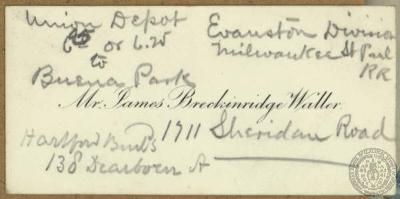 Union Depot
or 6.25
to
Buena Park
Evanston Division
Milwaukee St Paul
RR
Mr. James Breckinridge Waller
1911 Sheridan Road
Hartford
138 Dearborn